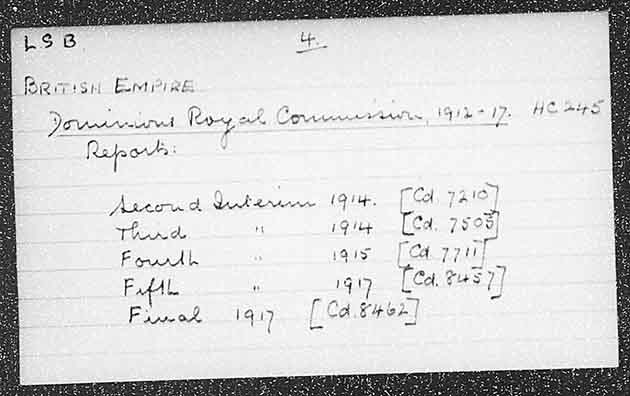 LSB 4.
BRITISH EMPIRE
Dominions Royal Commission, 1912-17. HC 245
Reports:
Second Interim 1914. [Cd. 7210]
Third " 1914 [Cd. 7505]
Fourth " 1915 [Cd 7711]
Fifth " 1917 [Cd. 8457]
Final 1917 [Cd. 8462]